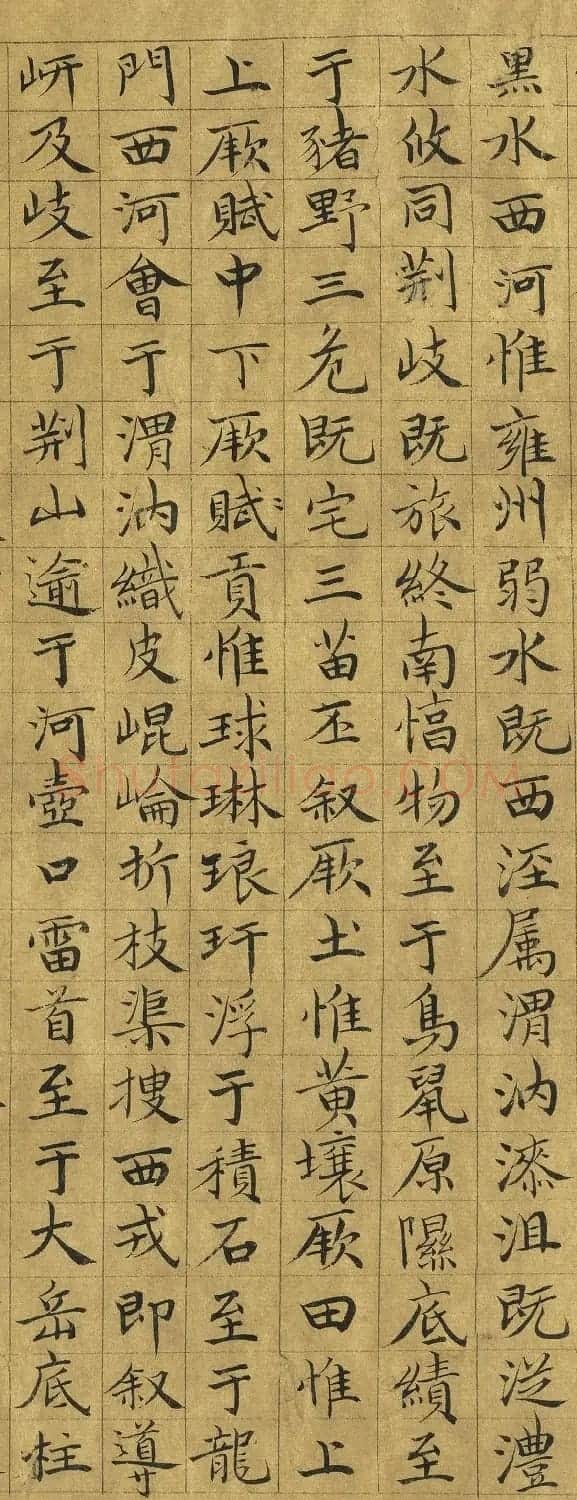 黑水西河惟雍州弱水既西泾属渭汭漆沮既從澧
水攸同荆岐既旅終南惇物至于鳥鼠原隰底績至
于豬野三危既宅三苗丕叙厥土惟黄壤厥田惟上
上厥賦中下厥賦貢惟球琳琅玕浮于積石至于龍
門西河會于渭汭織皮崐崘折枝渠搜西戎即叙導
岍及岐至于荆山逾于河壺口雷首至于大岳底柱